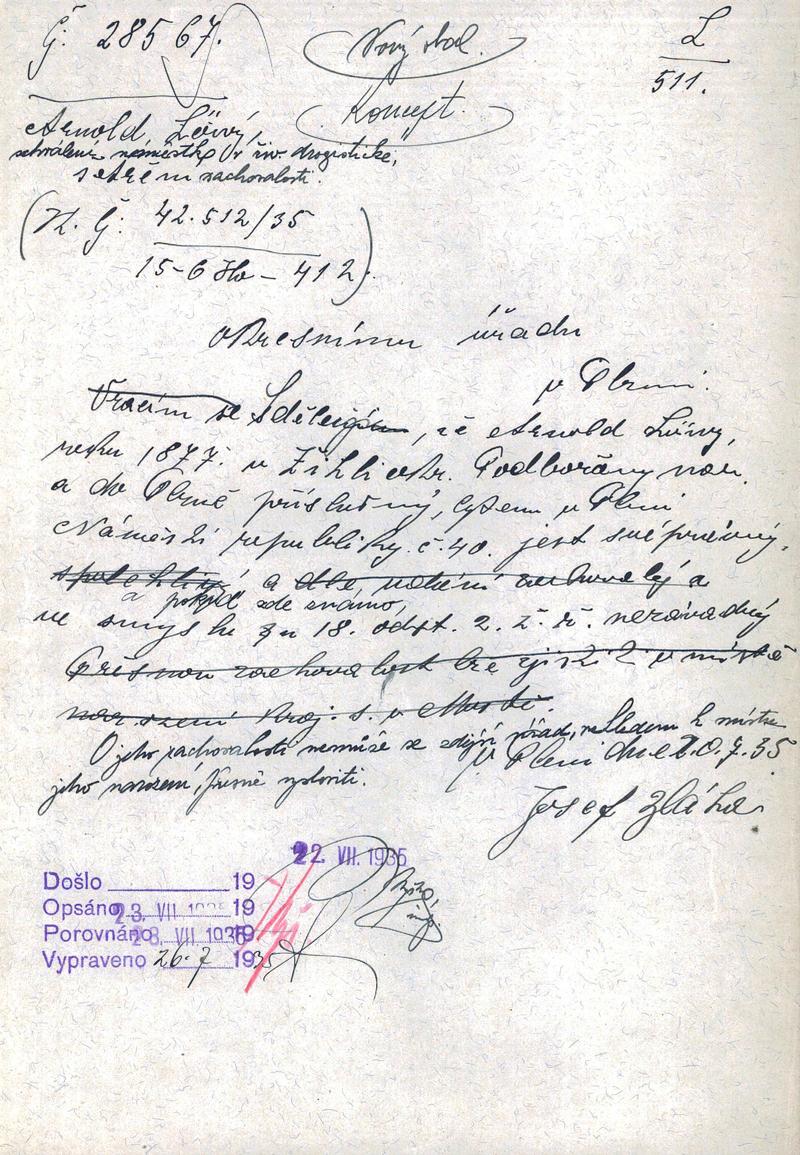 Č. 28567.
Nový obal.
L
511.
Koncept.
Arnold Löwy,
schválení náměstka v živ. drogistické,
šetření zachovalosti.
(K. Č. 42.512/35
15-6 Ho - 412).
Okresnímu úřadu
v Plzni.
Vracím se Sdělení, že Arnold Löwy,
roku 1877. v Žihli okr. Podbořany nar.
a do Plzně příslušný, bytem v Plzni
Náměstí republiky č. 40. jest svéprávný,
spolehlivý a dle, zachovalý a
a pokud zde známo,
ve smyslu zn 18. odst. 2. ž. ř. nezávadný
Přesnou zachovalost lze zjistit v místě
narození kraj. s. v Mostě.
O jeho zachovalosti nemůže se zdejší úřad, vzhledem k místu
V Plzni dne 20.7.35
jeho narození, přesně vysloviti.
Josef
22. VII. 1935
Došlo 19
Opsáno 23. VII 1935 19
Porovnáno 23. VII 1935 19
Vypraveno 26.7 1935